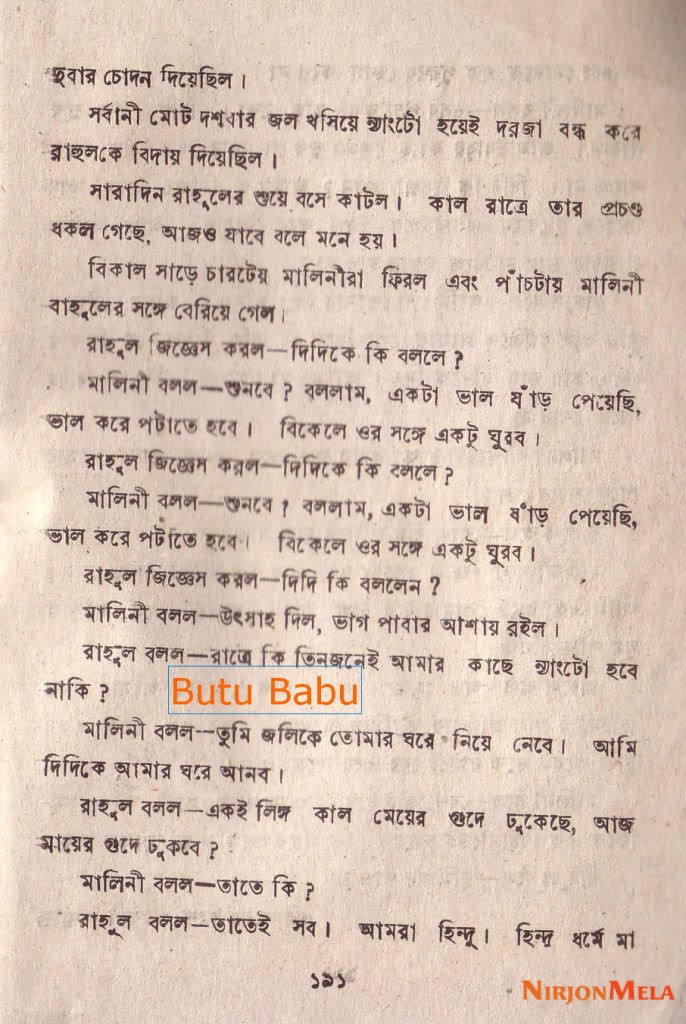 দুবার চোদন দিয়েছিল।
সর্বানী মোট দশবার জল খসিয়ে ন্যাংটো হয়েই দরজা বন্ধ করে
রাহুলকে বিদায় দিয়েছিল।
সারাদিন রাহুলের শুয়ে বসে কাটল। কাল রাত্রে তার প্রচণ্ড
ধকল গেছে, আজও যাবে বলে মনে হয়।
বিকাল সাড়ে চারটেয় মালিনীরা ফিরল এবং পাঁচটায় মালিনী
রাহুলের সঙ্গে বেরিয়ে গেল।
রাহুল জিজ্ঞেস করল—দিদিকে কি বললে ?
মালিনী বলল—শুনবে ? বললাম, একটা ভাল ষাঁড় পেয়েছি,
ভাল করে পটাতে হবে। বিকেলে ওর সঙ্গে একটু ঘুরব।
রাহুল জিজ্ঞেস করল—দিদিকে কি বললে ?
মালিনী বলল—শুনবে ? বললাম, একটা ভাল ষাঁড় পেয়েছি,
ভাল করে পটাতে হবে। বিকেলে ওর সঙ্গে একটু ঘুরব।
রাহুল জিজ্ঞেস করল—দিদি কি বললেন ?
মালিনী বলল—উৎসাহ দিল, ভাগ পাবার আশায় রইল।
রাহুল বলল—রাত্রে কি তিনজনেই আমার কাছে ন্যাংটো হবে
নাকি ?
Butu Babu
মালিনী বলল—তুমি জলিকে তোমার ঘরে নিয়ে নেবে। আমি
দিদিকে আমার ঘরে আনব।
রাহুল বলল—একই লিঙ্গ কাল মেয়ের গুদে ঢুকেছে, আজ
মায়ের গুদে ঢুকবে ?
মালিনী বলল—তাতে কি ?
রাহুল বলল—তাতেই সব। আমরা হিন্দু। হিন্দু ধর্মে মা
১৯১
NIRJONMELA